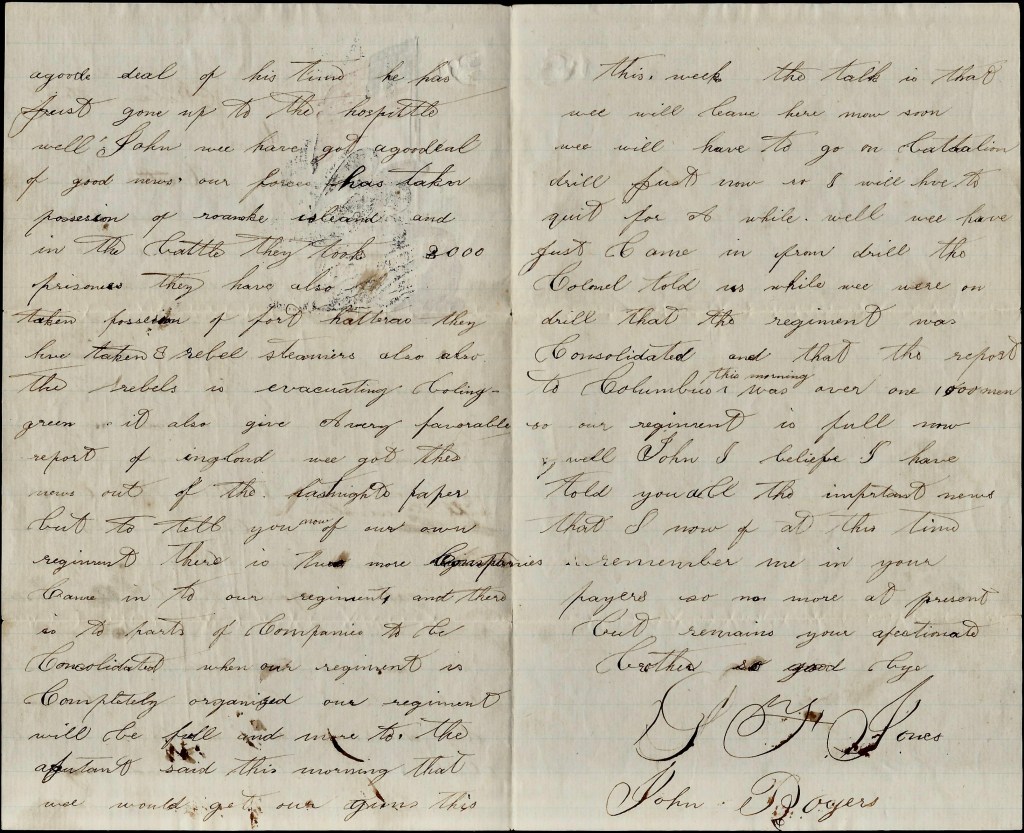 agoode deal of his time he has
just gone up to the hospittle
well John wee have got agoodeal
of good news. our force has taken
possesion of roanoke isleand and
in the battle they took 3000
prisones they have also
taken possesion of fort hatteras they
hve taken 3 rebel steamers also also
the rebels is evacuating boling-
green it also give avery favorable
report of englond wee got thes
news out of the lasnights paper
but to tell you now of our own
regiment there is two more Companies
Came in to our regiment and there
is to parts of Companies to be
Consolidated when our regiment is
Completely organized our regiment
will be full and more to. the
ajutant said this morning that
wee would get our guns this
this. week the talk is that
wee will leave here mow soon
wee will have to go on battalion
drill just now so I will hve to
quit for A while. well wee have
just Came in from drill the
Colonel told us while wee were on
drill that the regiment was
Consolidated and that the report
to Columbus this morning was over one 1000 men
so our regiment is full now
well John I believe I have
told you all the imprtant news
that I now of at this time
remember me in your
payers so no more at present
but remains your afectionate
brother so good bye
S Y Jones
John. Rogers